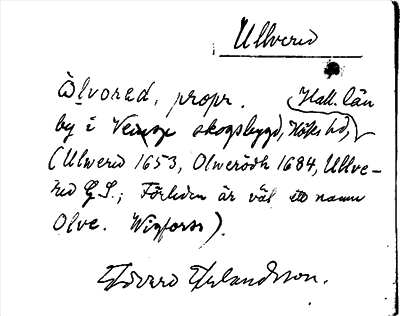 Ullvered
Älvored, propr. Hall. län
by i Veinge skogsbygd, Höks hd,
(Ulwered 1653, Olwerödh 1684, Ullve-
red G.S.; Förleden är väl ett namn
Olve. Wigforss).
Edvard Erlandsson.